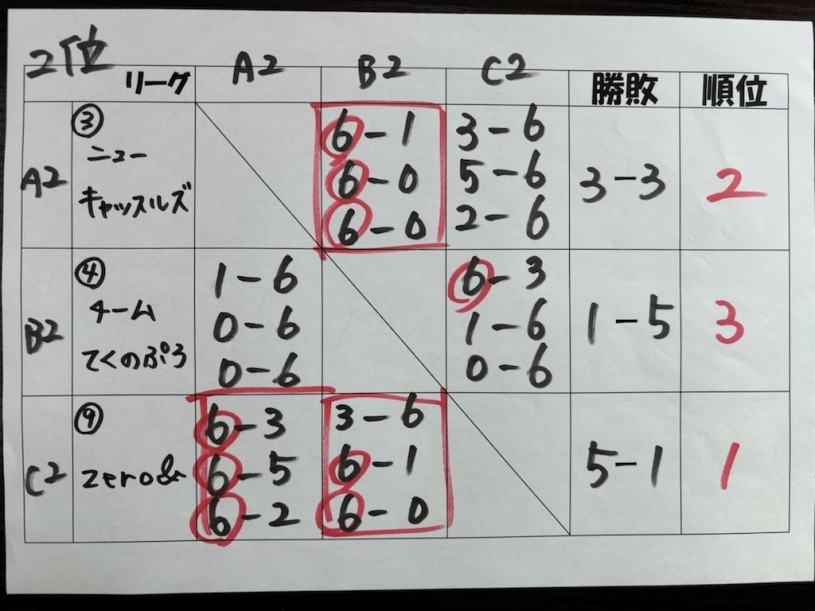 2位
リーグ A2 B2 C2 勝敗 順位
A2 ③ ニューキャッスルズ 6-1 3-6 3-3 2
6-0 5-6
6-0 2-6
B2 ④ チームてくのぷろ 1-6 6-3 1-5 3
0-6 1-6
0-6 0-6
C2 ⑨ zero& 6-3 3-6 5-1 1
6-5 6-1
6-2 6-0